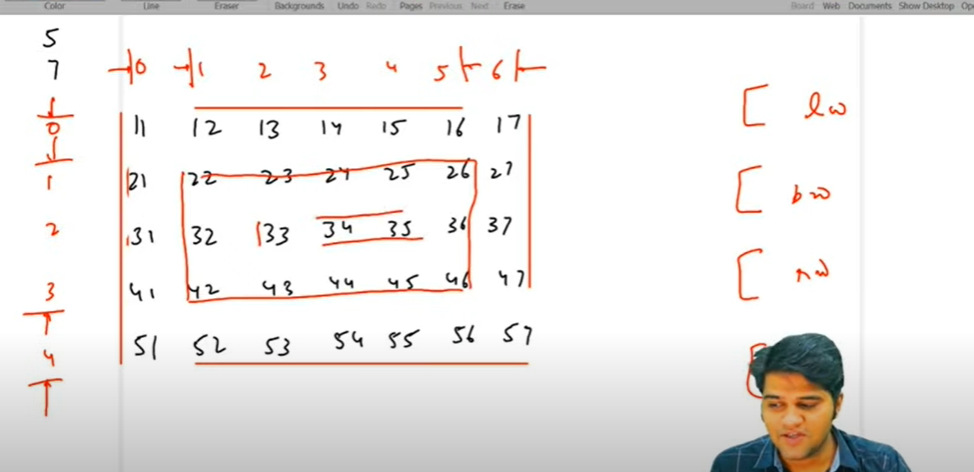 Color Line Eraser Backgrounds Undo Redo Pages Previous Next Erase Board Web Documents Show Desktop
5
7
0 1 2 3 4 5 6
0 11 12 13 14 15 16 17
1 21 22 23 24 25 26 27
2 31 32 33 34 35 36 37
3 41 42 43 44 45 46 47
4 51 52 53 54 55 56 57
lw
bw
rw